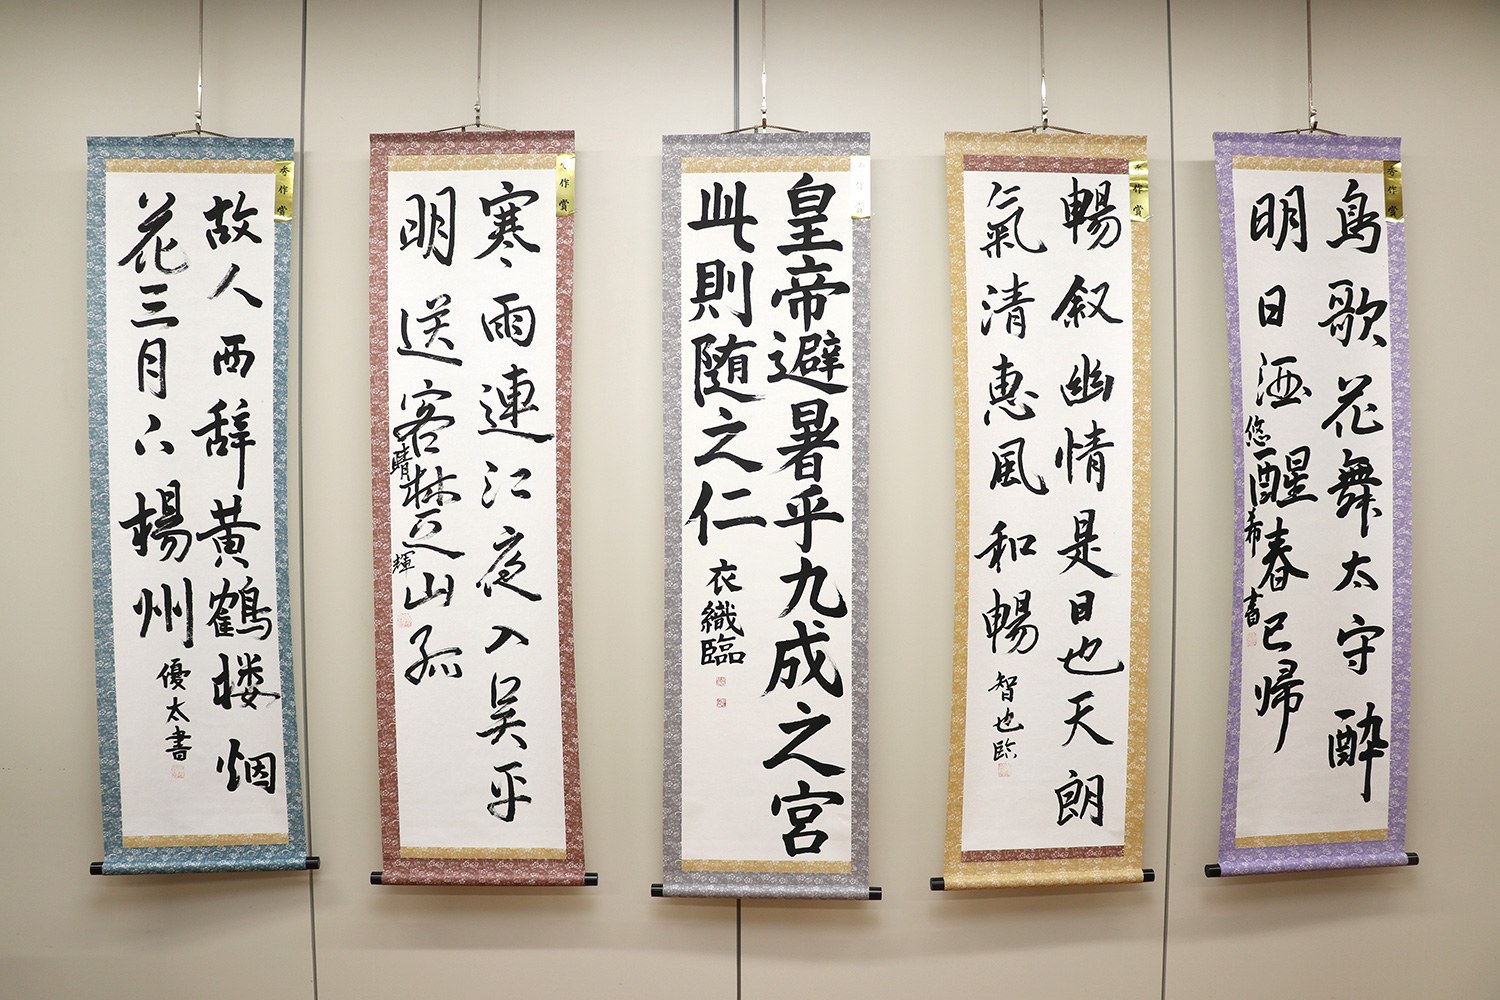 鳥歌花舞太守酔
明日酒醒春已帰
悠希書
秀作賞
暢叙幽情是日也天朗
氣清惠風和暢
智也臨
作賞
皇帝避暑乎九成之宮
此則随之仁
衣織臨
作賞
寒雨連江夜入呉平
明送客楚山孤
晴輝
作賞
故人西辞黄鶴楼烟
花三月下揚州
優太書
秀作賞